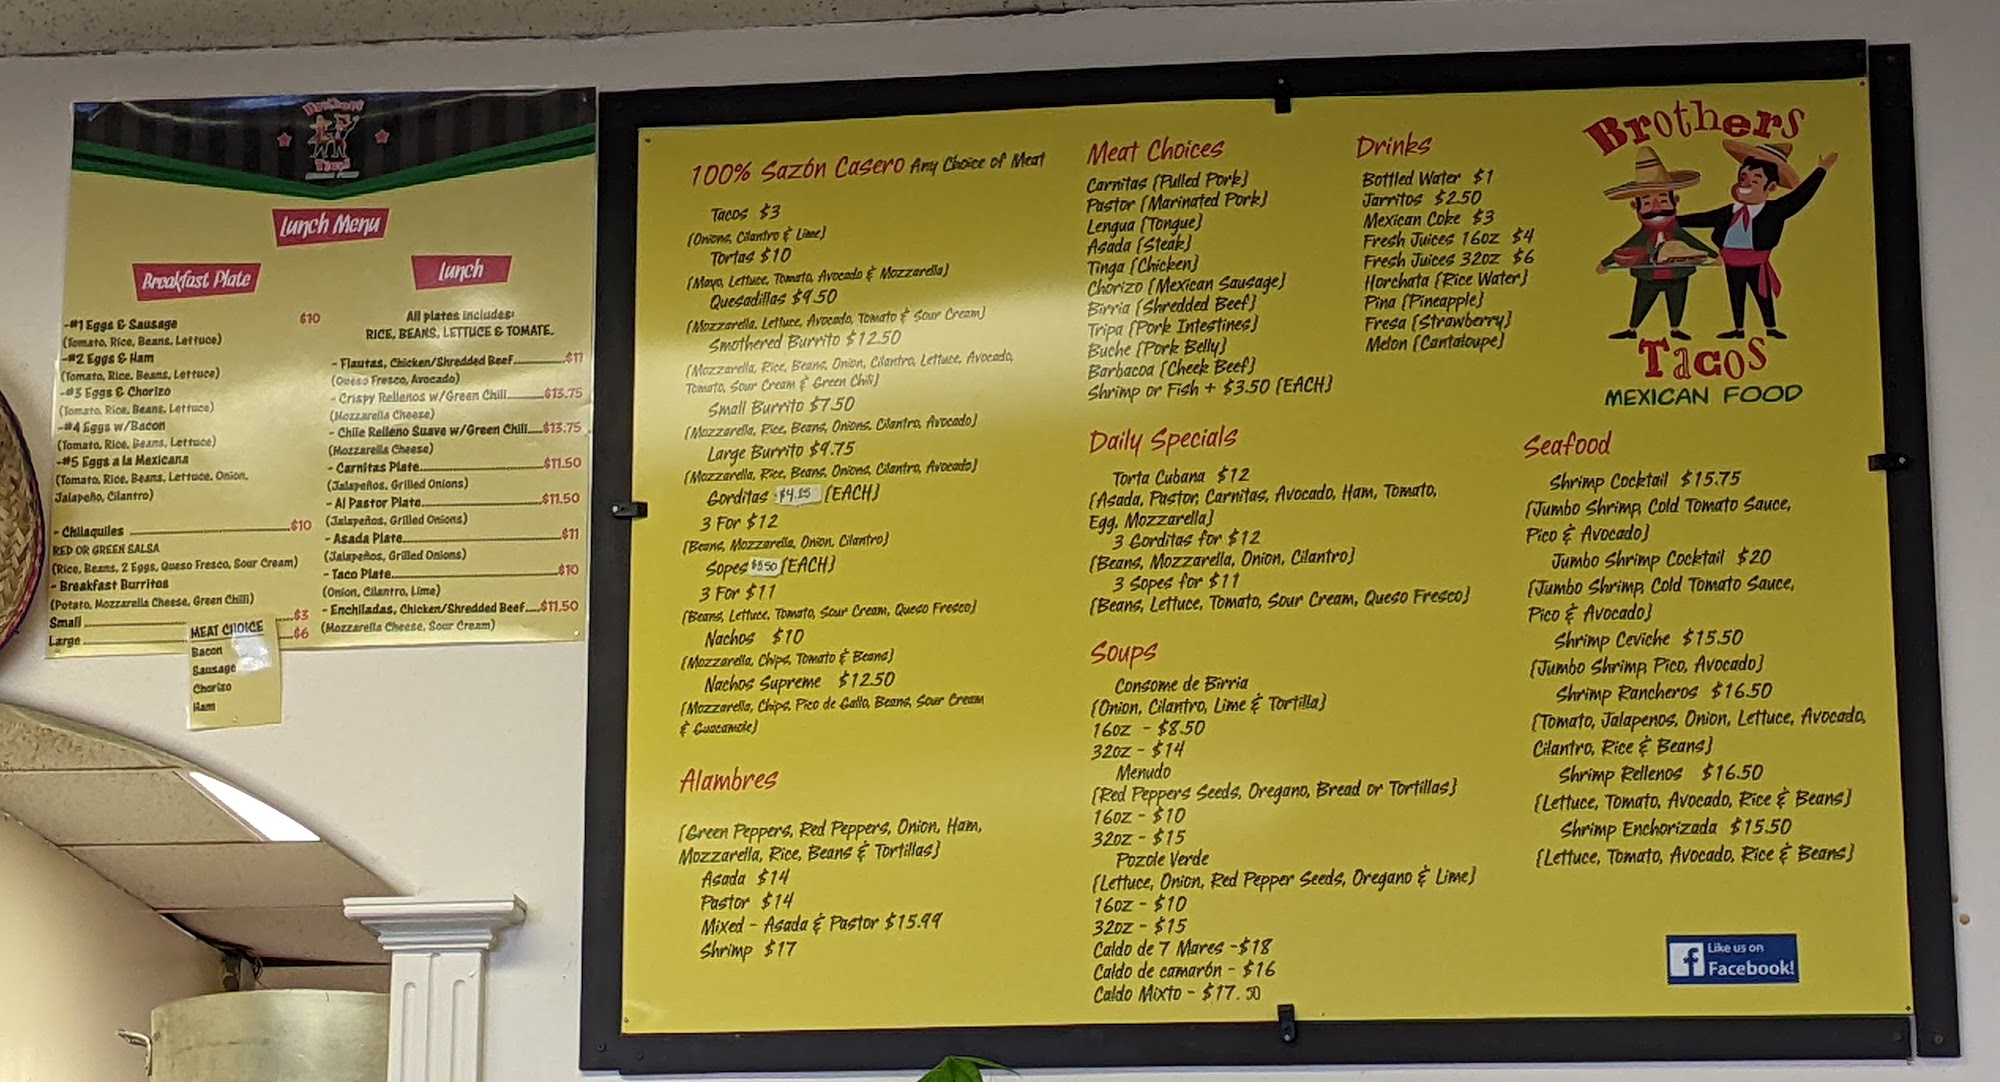 Brothers
Tacos
Lunch Menu
Breakfast Plate
-#1 Eggs & Sausage $10
(Tomato, Rice, Beans, Lettuce)
-#2 Eggs & Ham
(Tomato, Rice, Beans, Lettuce)
-#3 Eggs & Chorizo
(Tomato, Rice, Beans, Lettuce)
-#4 Eggs w/Bacon
(Tomato, Rice, Beans, Lettuce)
-#5 Eggs a la Mexicana
(Tomato, Rice, Beans, Lettuce, Onion,
Jalapeño, Cilantro)
- Chilaquiles $10
RED OR GREEN SALSA
(Rice, Beans, 2 Eggs, Queso Fresco, Sour Cream)
- Breakfast Burritos
(Potato, Mozzarella Cheese, Green Chili)
Small $3
Large $6
MEAT CHOICE
Bacon
Sausage
Chorizo
Ham
Lunch
All plates includes:
RICE, BEANS, LETTUCE & TOMATE.
- Flautas, Chicken/Shredded Beef $11
(Queso Fresco, Avocado)
- Crispy Rellenos w/Green Chili $13.75
(Mozzarella Cheese)
- Chile Relleno Suave w/Green Chili $13.75
(Mozzarella Cheese)
- Carnitas Plate $11.50
(Jalapeños, Grilled Onions)
- Al Pastor Plate $11.50
(Jalapeños, Grilled Onions)
- Asada Plate $11
(Jalapeños, Grilled Onions)
- Taco Plate $10
(Onion, Cilantro, Lime)
- Enchiladas, Chicken/Shredded Beef $11.50
(Mozzarella Cheese, Sour Cream)
100% Sazón Casero Any Choice of Meat
Tacos $3
{Onions, Cilantro & Lime}
Tortas $10
{Mayo, Lettuce, Tomato, Avocado & Mozzarella}
Quesadillas $9.50
{Mozzarella, Lettuce, Avocado, Tomato & Sour Cream}
Smothered Burrito $12.50
{Mozzarella, Rice, Beans, Onion, Cilantro, Lettuce, Avocado,
Tomato, Sour Cream & Green Chili}
Small Burrito $7.50
{Mozzarella, Rice, Beans, Onions, Cilantro, Avocado}
Large Burrito $9.75
{Mozzarella, Rice, Beans, Onions, Cilantro, Avocado}
Gorditas $4.25 {EACH}
3 For $12
{Beans, Mozzarella, Onion, Cilantro}
Sopes $3.50 {EACH}
3 For $11
{Beans, Lettuce, Tomato, Sour Cream, Queso Fresco}
Nachos $10
{Mozzarella, Chips, Tomato & Beans}
Nachos Supreme $12.50
{Mozzarella, Chips, Pico de Gallo, Beans, Sour Cream
& Guacamole}
Alambres
{Green Peppers, Red Peppers, Onion, Ham,
Mozzarella, Rice, Beans & Tortillas}
Asada $14
Pastor $14
Mixed - Asada & Pastor $15.99
Shrimp $17
Meat Choices
Carnitas {Pulled Pork}
Pastor {Marinated Pork}
Lengua {Tongue}
Asada {Steak}
Tinga {Chicken}
Chorizo {Mexican Sausage}
Birria {Shredded Beef}
Tripa {Pork Intestines}
Buche {Pork Belly}
Barbacoa {Cheek Beef}
Shrimp or Fish + $3.50 {EACH}
Daily Specials
Torta Cubana $12
{Asada, Pastor, Carnitas, Avocado, Ham, Tomato,
Egg, Mozzarella}
3 Gorditas for $12
{Beans, Mozzarella, Onion, Cilantro}
3 Sopes for $11
{Beans, Lettuce, Tomato, Sour Cream, Queso Fresco}
Soups
Consome de Birria
{Onion, Cilantro, Lime & Tortilla}
16oz - $8.50
32oz - $14
Menudo
{Red Peppers Seeds, Oregano, Bread or Tortillas}
16oz - $10
32oz - $15
Pozole Verde
{Lettuce, Onion, Red Pepper Seeds, Oregano & Lime}
16oz - $10
32oz - $15
Caldo de 7 Mares -$18
Caldo de camarón - $16
Caldo Mixto - $17.50
Drinks
Bottled Water $1
Jarritos $2.50
Mexican Coke $3
Fresh Juices 16oz $4
Fresh Juices 32oz $6
Horchata {Rice Water}
Pina {Pineapple}
Fresa {Strawberry}
Melon {Cantaloupe}
Brothers
Tacos
MEXICAN FOOD
Seafood
Shrimp Cocktail $15.75
{Jumbo Shrimp, Cold Tomato Sauce,
Pico & Avocado}
Jumbo Shrimp Cocktail $20
{Jumbo Shrimp, Cold Tomato Sauce,
Pico & Avocado}
Shrimp Ceviche $15.50
{Jumbo Shrimp, Pico, Avocado}
Shrimp Rancheros $16.50
{Tomato, Jalapenos, Onion, Lettuce, Avocado,
Cilantro, Rice & Beans}
Shrimp Rellenos $16.50
{Lettuce, Tomato, Avocado, Rice & Beans}
Shrimp Enchorizada $15.50
{Lettuce, Tomato, Avocado, Rice & Beans}
f Like us on
Facebook!